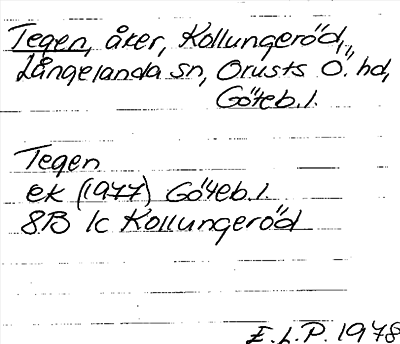 Tegen, åker, Kollungeröd,
Långelanda sn, Orusts Ö. hd,
Göteb. l.
Tegen
ek (1977) Göteb. l.
8B 1c Kollungeröd
E.L.P. 1978